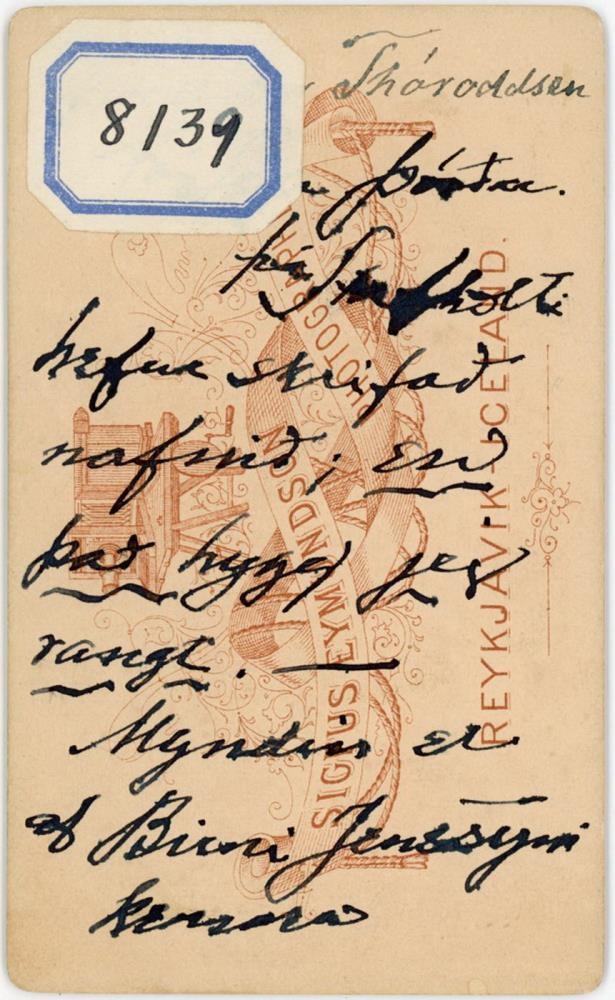 8139
Thóroddsen
Þórðu.
frá
hefur skrifað
nafnið; en
það hygg jeg
rangt.
Myndin er
af Birni Jenssyni
kennara
SIGFUS EYMUNDSSON
PHOTOGRAPH
REYKJAVIK - ICELAND.